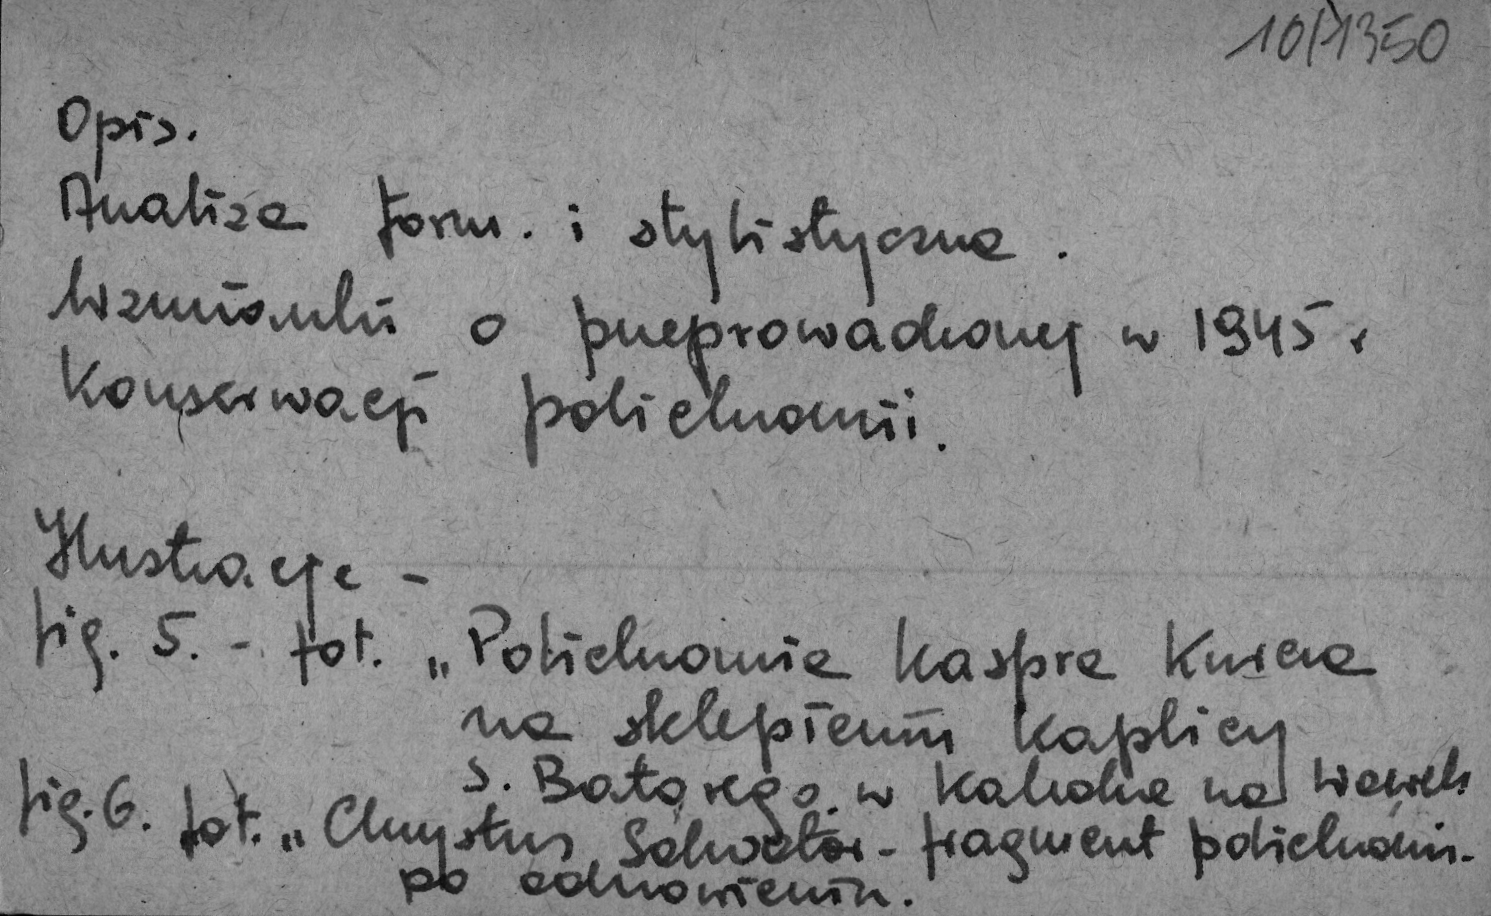 10/1350
Opis.
Analiza form. i stylistyczna.
Wzmianki o przeprowadzonej w 1945 r
Konserwacji polichromii.
Ilustracje -
fig. 5. - fot. „Polichromia Kaspra Kurcza
na sklepieniu kaplicy
S. Batorego w Katedrze na Wawelu
fig. 6. fot. „Chrystus Salvator - fragment polichromii.
po odnowieniu.